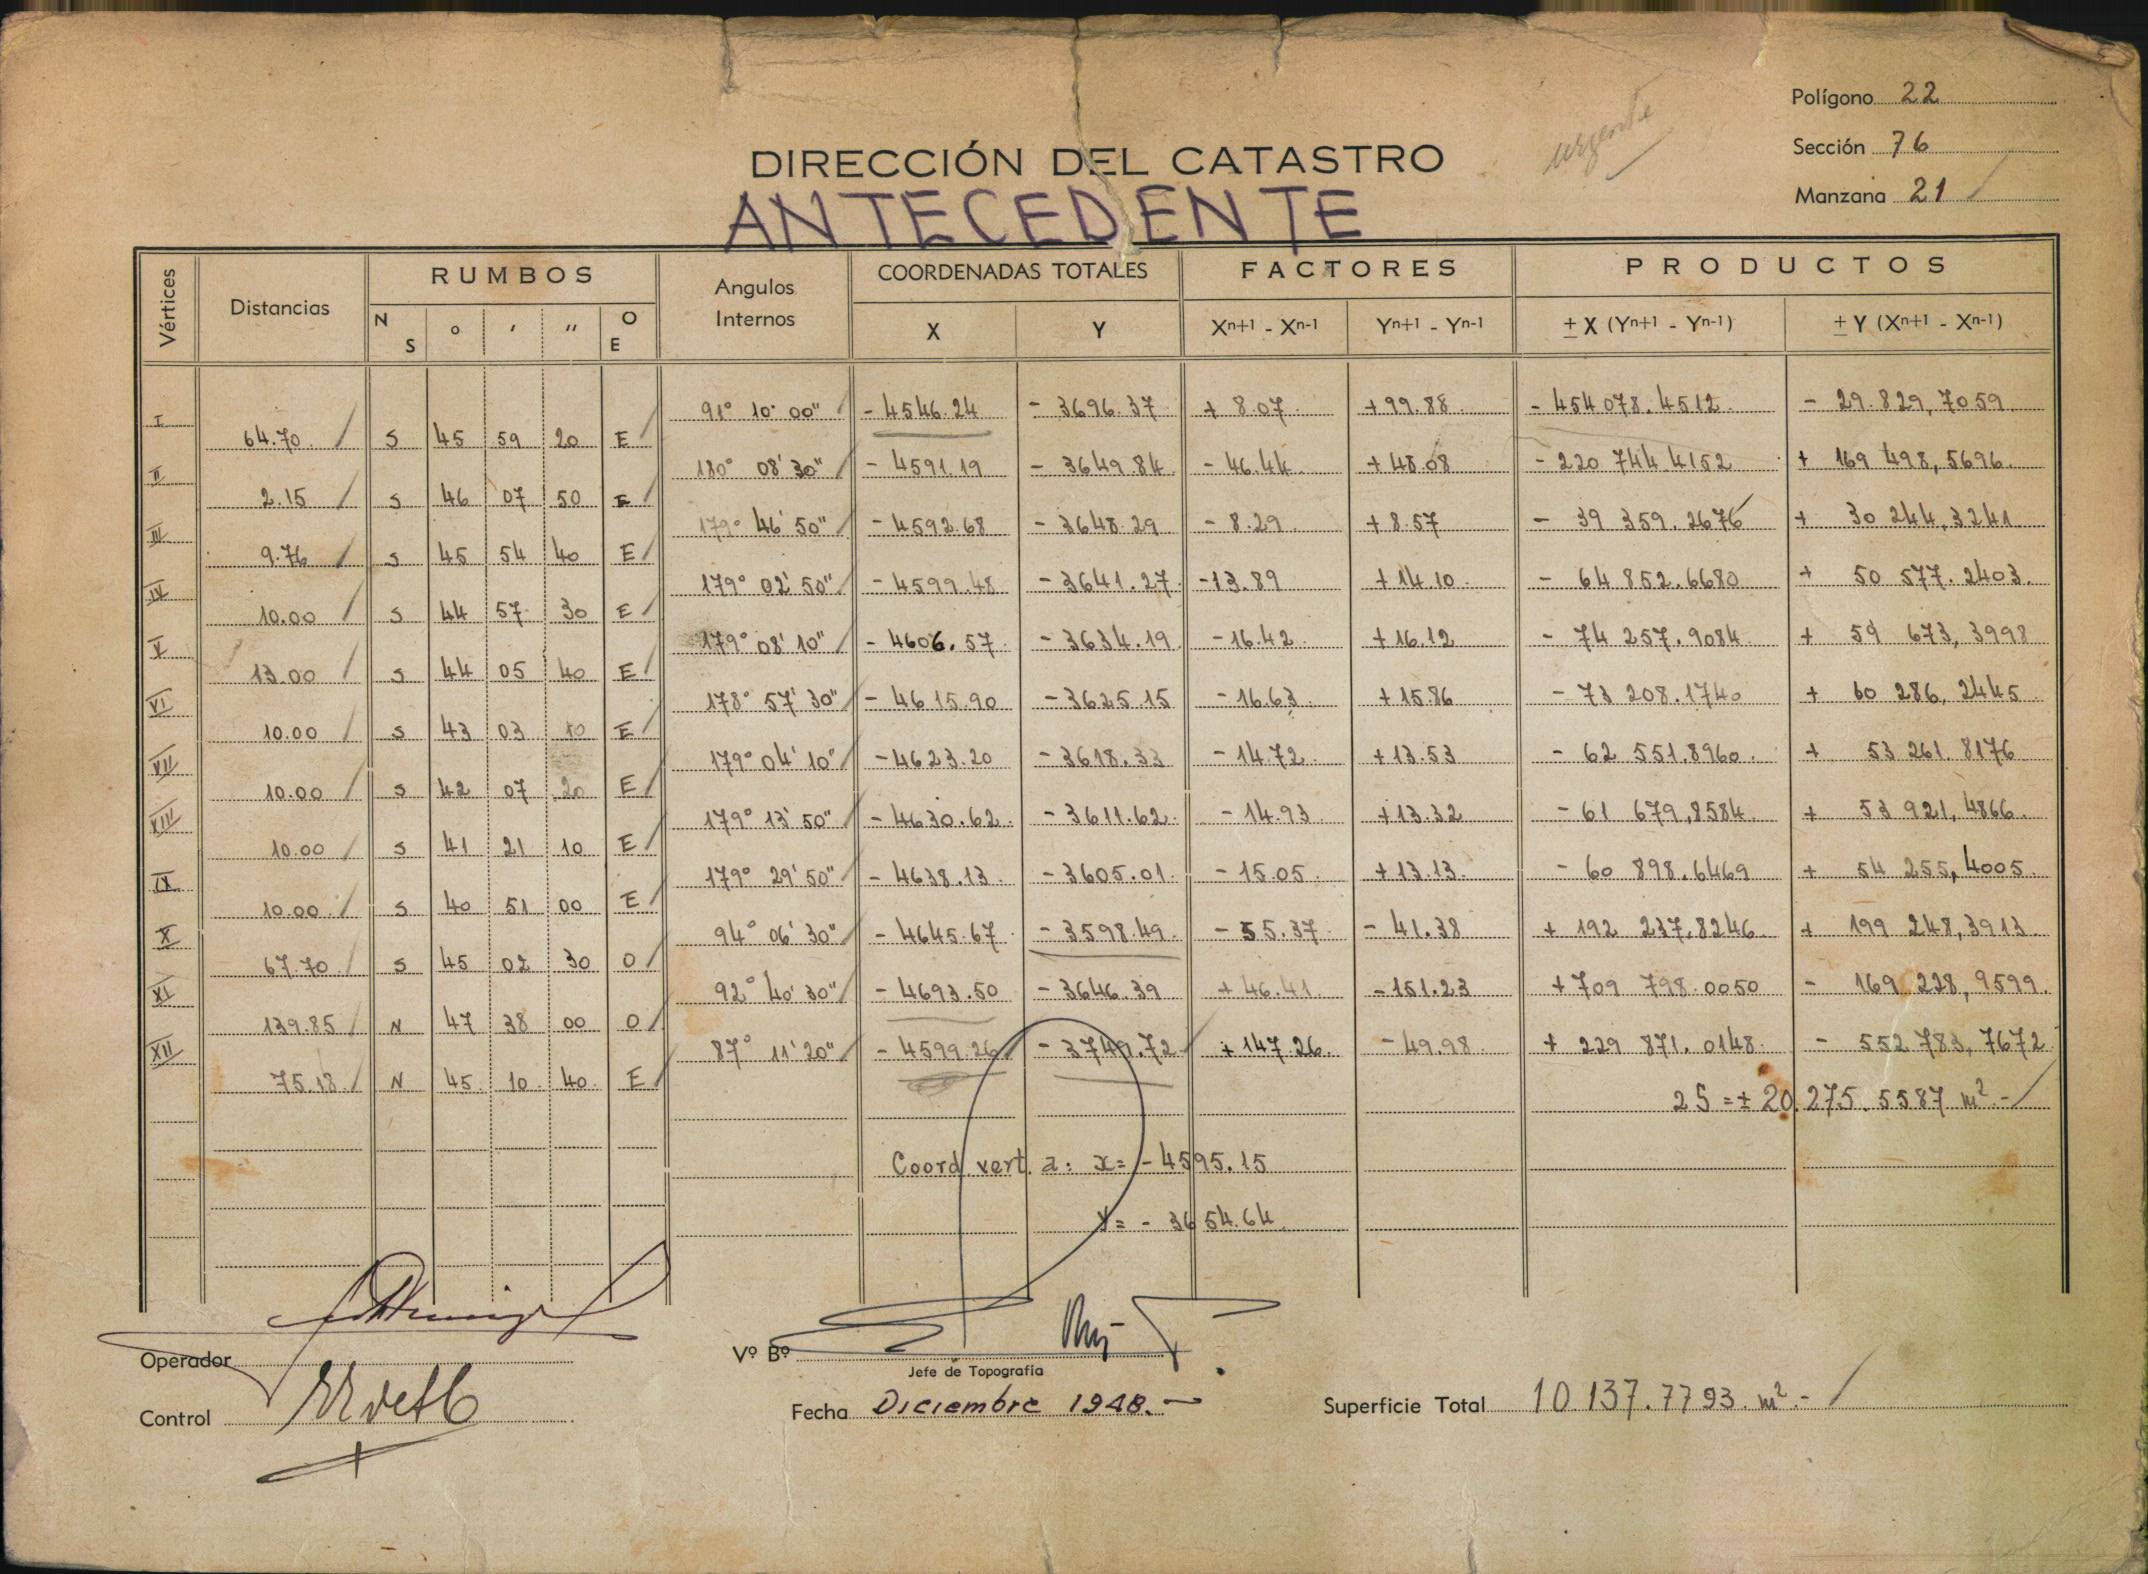 Polígono 22
urgente
DIRECCIÓN DEL CATASTRO
Sección 76
ANTECEDENTE
Manzana 21
Vértices Distancias RUMBOS Angulos Internos COORDENADAS TOTALES FACTORES PRODUCTOS
N S ° ' '' O E X Y Xn+1 - Xn-1 Yn+1 - Yn-1 ± X (Yn+1 - Yn-1) ± Y (Xn+1 - Xn-1)
I 91° 10' 00" - 4546.24 - 3696.37 + 8.07 + 99.88 - 454078.4512 - 29.829,7059
64.70 S 45 59 20 E
II 180° 08' 30" - 4591.19 - 3649.84 - 46.44 + 48.08 - 220 744 4152 + 169 498,5696
2.15 S 46 07 50 E
III 179° 46' 50" - 4592.68 - 3648.29 - 8.29 + 8.57 - 39 359.2676 + 30 244,3241
9.76 S 45 54 40 E
IV 179° 02' 50" - 4599.48 - 3641.27 - 13.89 + 14.10 - 64 852.6680 + 50 577.2403
10.00 S 44 57 30 E
V 179° 08' 10" - 4606.57 - 3634.19 - 16.42 + 16.12 - 74 257.9084 + 59 673,3998
13.00 S 44 05 40 E
VI 178° 57' 30" - 4615.90 - 3625.15 - 16.63 + 15.86 - 73 208.1740 + 60 286,2445
10.00 S 43 03 10 E
VII 179° 04' 10" - 4623.20 - 3618.33 - 14.72 + 13.53 - 62 551.8960 + 53 261.8176
10.00 S 42 07 20 E
VIII 179° 13' 50" - 4630.62 - 3611.62 - 14.93 + 13.32 - 61 679,8584 + 53 921,4866
10.00 S 41 21 10 E
IX 179° 29' 50" - 4638.13 - 3605.01 - 15.05 + 13.13 - 60 898.6469 + 54 255,4005
10.00 S 40 51 00 E
X 94° 06' 30" - 4645.67 - 3598.49 - 55.37 - 41.38 + 192 237.8246 + 199 248,3913
67.70 S 45 02 30 O
XI 92° 40' 30" - 4693.50 - 3646.39 + 46.41 - 151.23 + 709 798.0050 - 169 228,9599
139.85 N 47 38 00 O
XII 87° 11' 20" - 4599.26 - 3749.72 + 147.26 - 49.98 + 229 871.0148 - 552 783,7672
75.18 N 45 10 40 E
2S = ± 20.275.5587 m² -
Coord. vert. a: x = - 4595.15
Y = - 3654.64
Operador
Vº Bº
Jefe de Topografía
Control
Fecha Diciembre 1948. -
Superficie Total 10.137.7793 m². -